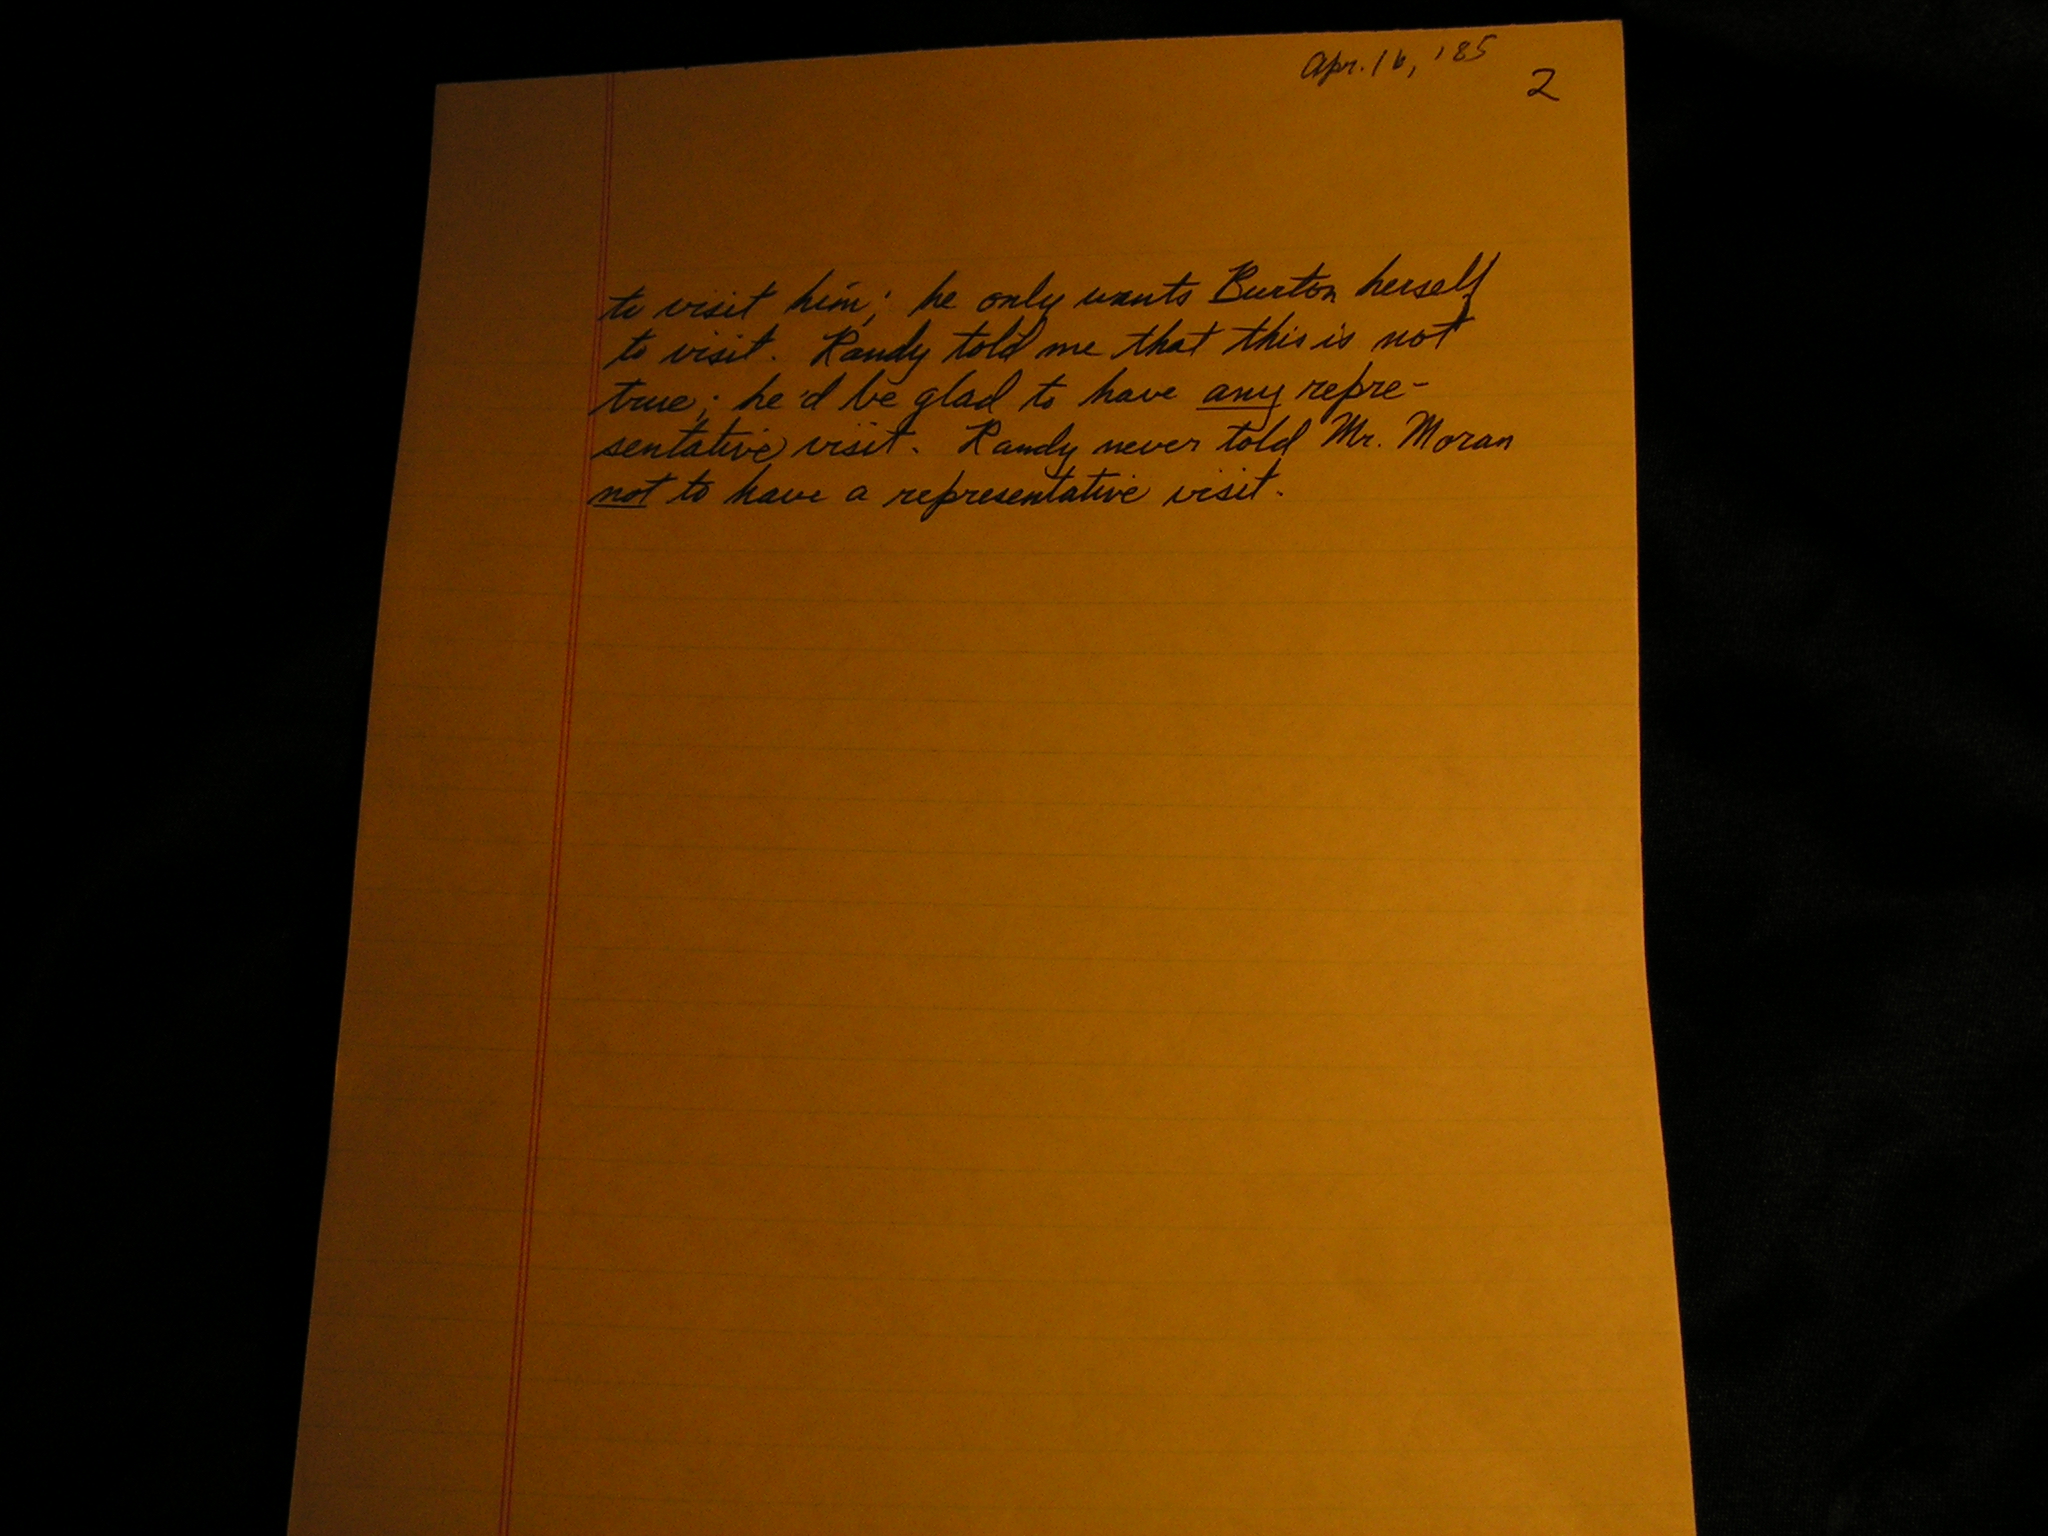 Apr. 16, '85
2
to visit him; he only wants Burton herself
to visit. Randy told me that this is not
true; he'd be glad to have any repre-
sentative visit. Randy never told Mr. Moran
not to have a representative visit.